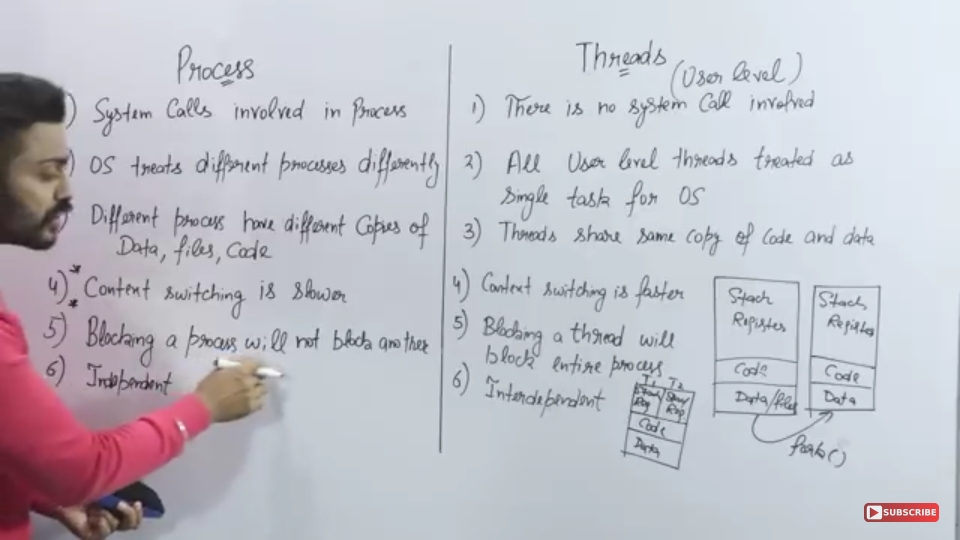 Process
) System Calls involved in Process
) OS treats different processes differently
Different process have different Copies of
Data, files, Code
4)* Context switching is slower
5)* Blocking a process will not block another
6) Independent
Threads
(User level)
1) There is no system Call involved
2) All User level threads treated as
single task for OS
3) Threads share same copy of Code and data
4) Context switching is faster
5) Blocking a thread will
block entire process
6) Interdependent
T1 T2
Stack Stack
Reg Reg
Code
Data
Stack
Register
Code
Data/files
Stack
Register
Code
Data
fork()
SUBSCRIBE